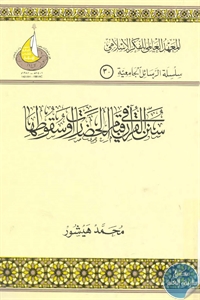 المعهد العالمي للفكر الإسلامي
سلسلة الرسائل الجامعية
(٣٠)
سنن القرآن في قيام الحضارات وسقوطها
محمد هيشور